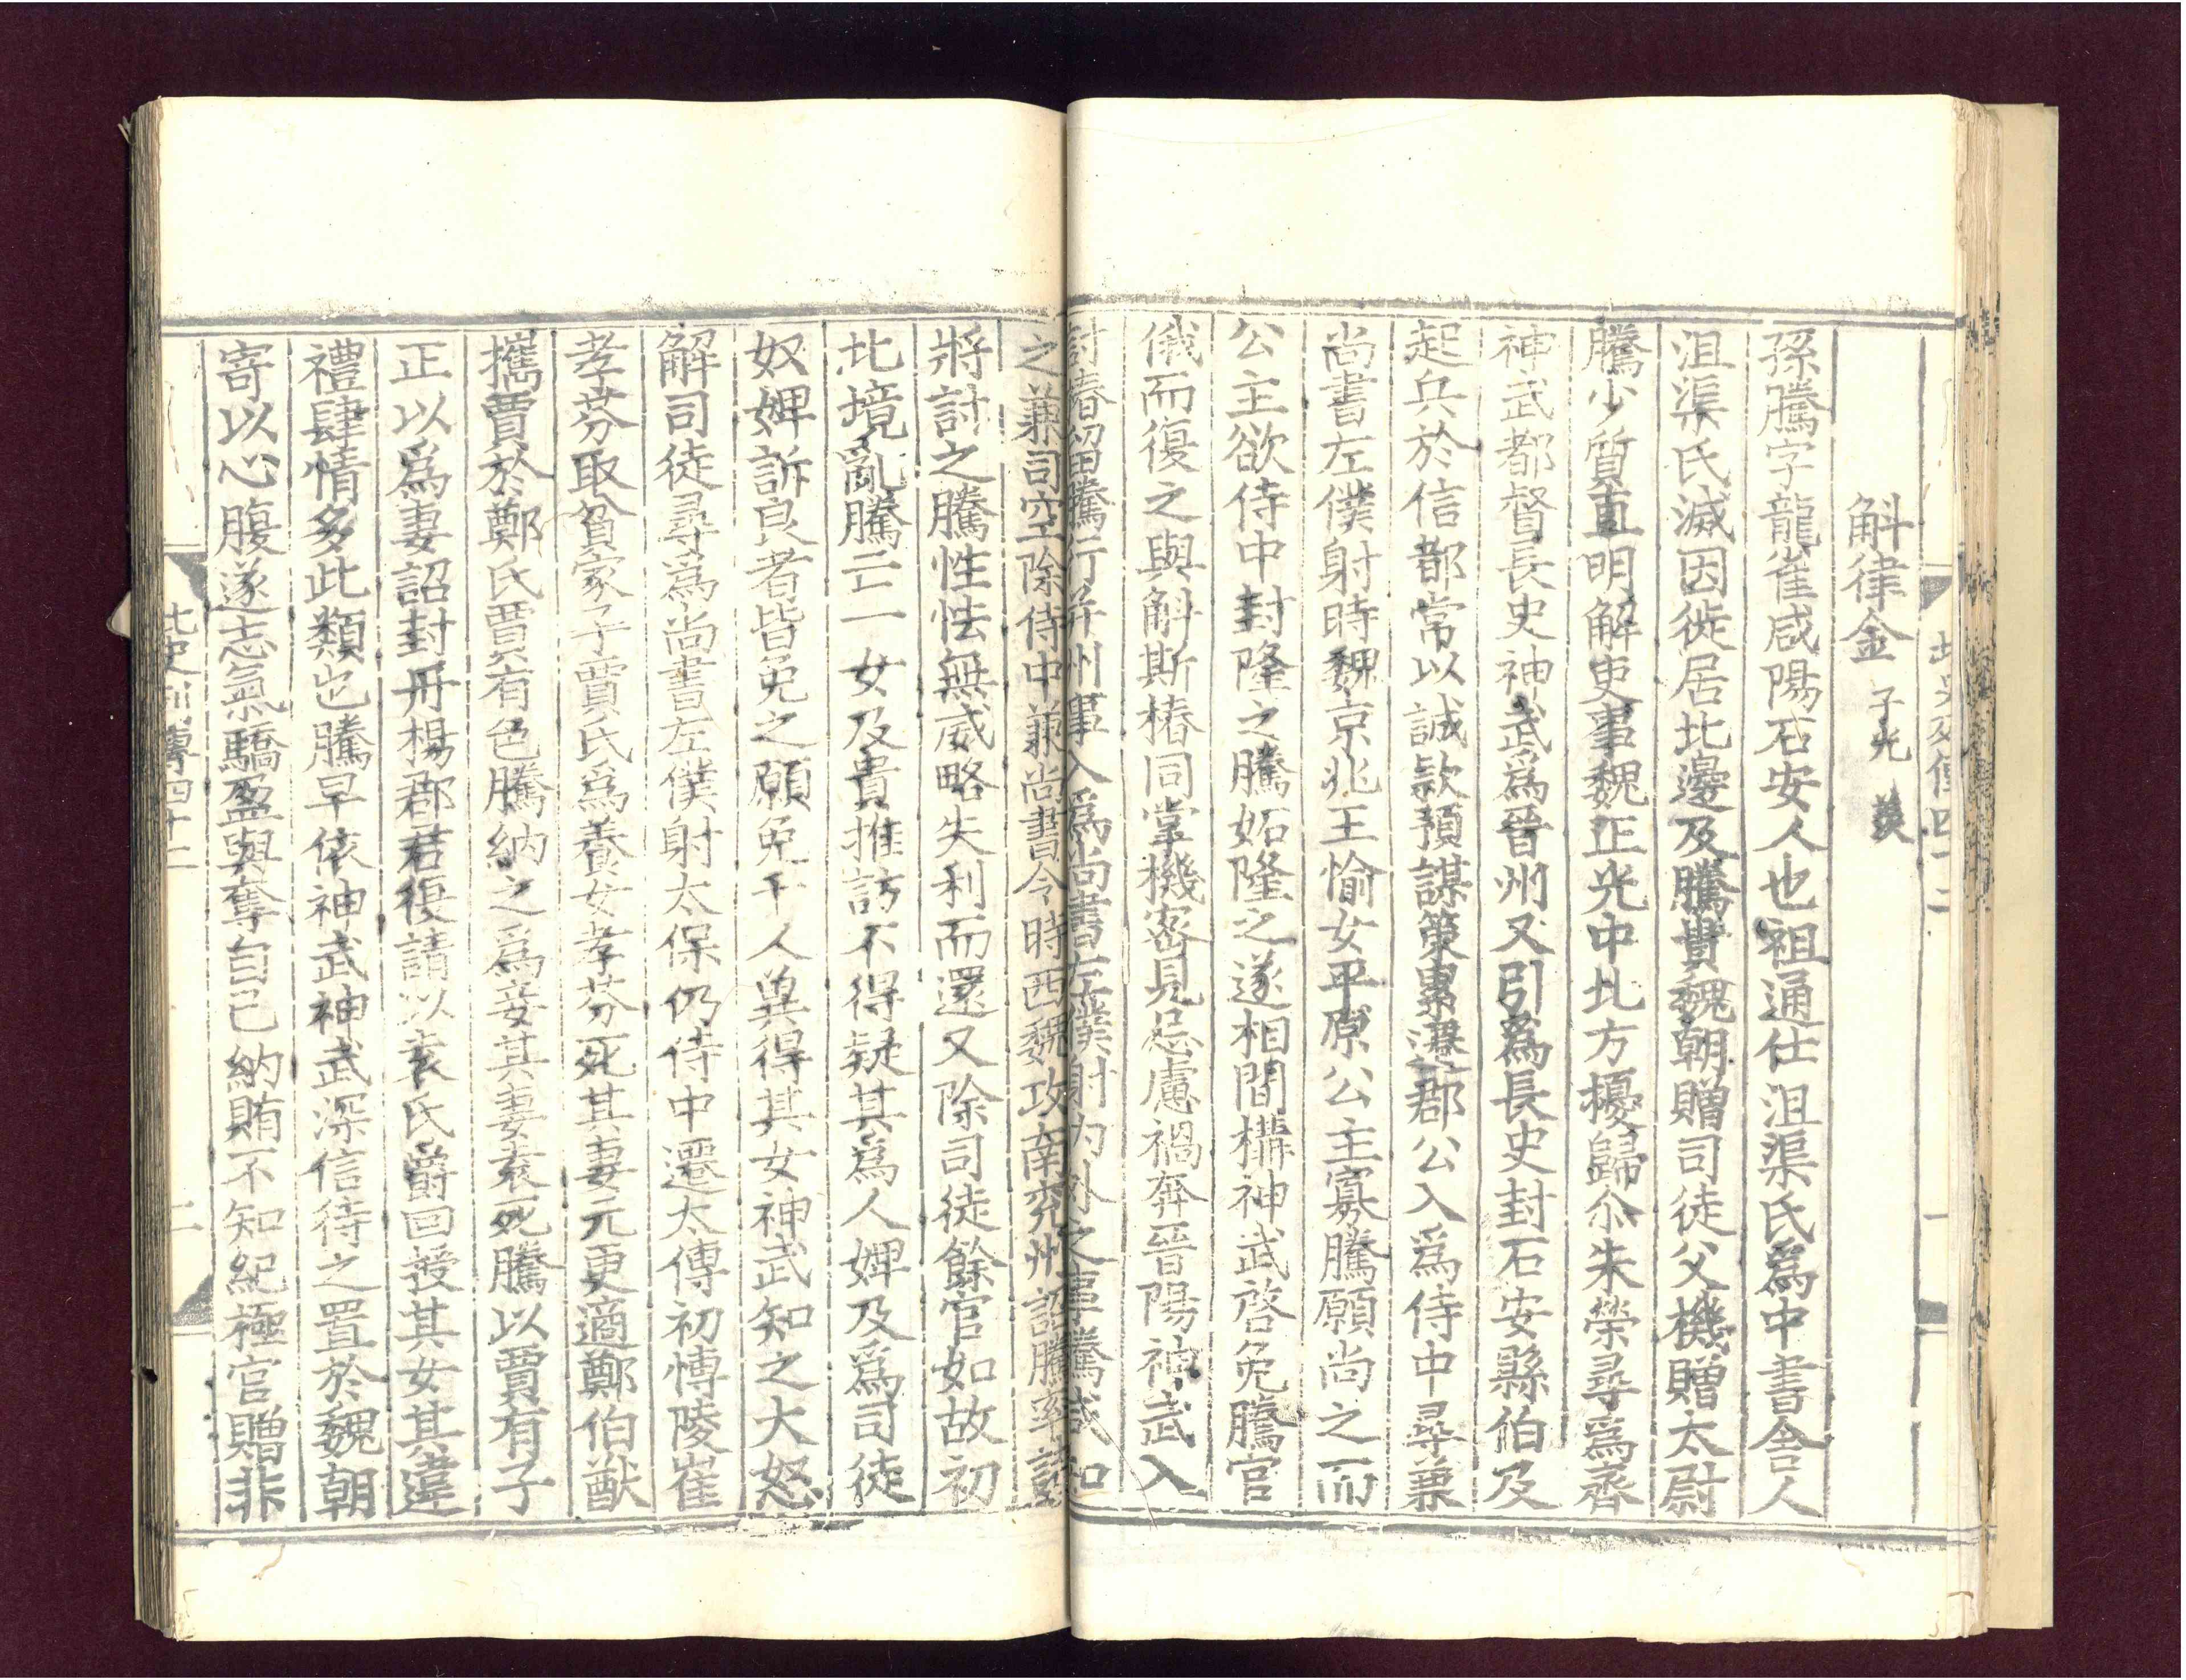 北史列傳四十二
一
斛律金 子光 羨
孫騰字龍雀咸陽石安人也祖通仕沮渠氏爲中書舍人
沮渠氏滅因徙居北邊及騰貴魏朝贈司徒父機贈太尉
騰少質直明解吏事魏正光中北方擾歸尒朱榮尋爲齊
神武都督長史神武爲晉州又引爲長史封石安縣伯及
起兵於信都常以誠款預謀策累遷郡公入爲侍中尋兼
尚書左僕射時魏京兆王愉女平原公主寡騰願尚之而
公主欲侍中封隆之騰妬隆之遂相間構神武啓免騰官
俄而復之與斛斯椿同掌機密見忌慮禍奔晉陽神武入
討椿留騰行并州事入爲尚書左僕射內外之事騰咸知
之兼司空除侍中兼尚書令時西魏攻南兗州詔騰率諸
將討之騰性怯無威略失利而還又除司徒餘官如故初
北境亂騰亡一女及貴推訪不得疑其爲人婢及爲司徒
奴婢訴良者皆免之願免千人兾得其女神武知之大怒
解司徒尋爲尚書左僕射太保仍侍中遷太傅初博陵崔
孝芬取貧家子賈氏爲養女孝芬死其妻元更適鄭伯猷
攜賈於鄭氏賈有色騰納之爲妾其妻袁死騰以賈有子
正以爲妻詔封丹楊郡君復請以袁氏爵回授其女其違
禮肆情多此類也騰早依神武神武深信待之置於魏朝
寄以心腹遂志氣驕盈與奪自己納賄不知紀極官贈非
北史列傳四十二
二